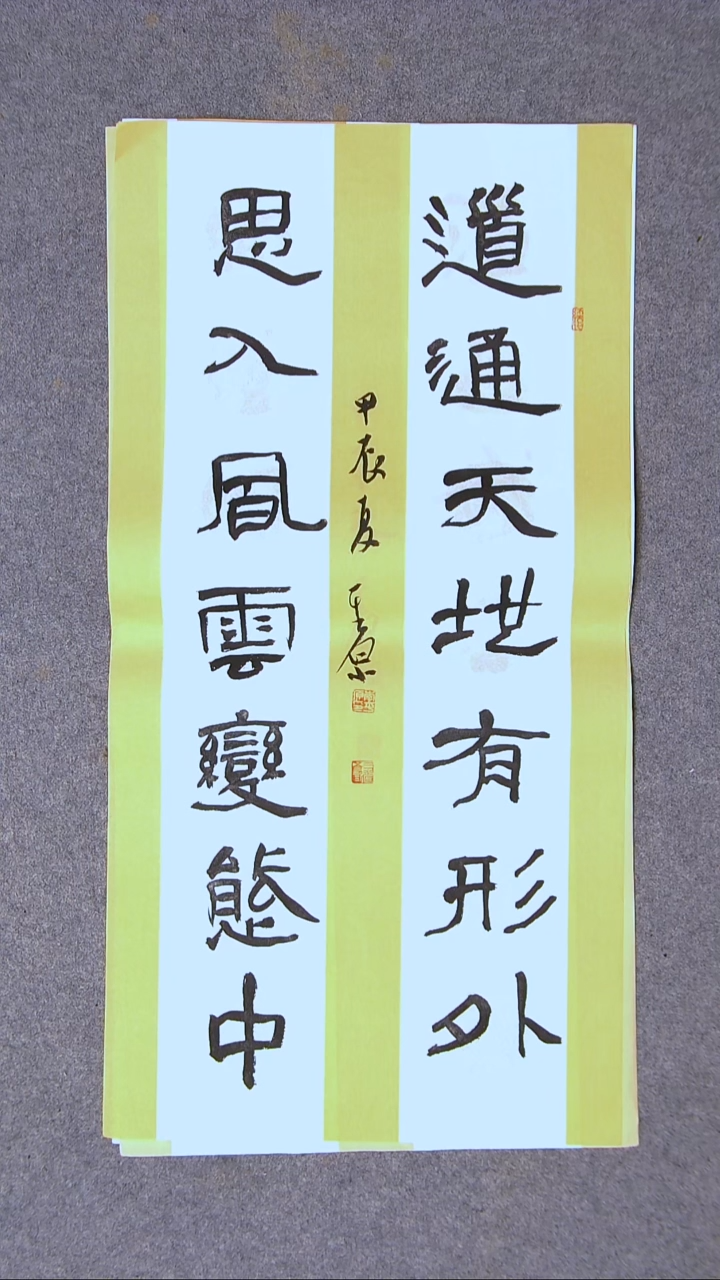 道通天地有形外
思入風雲變態中
甲辰夏